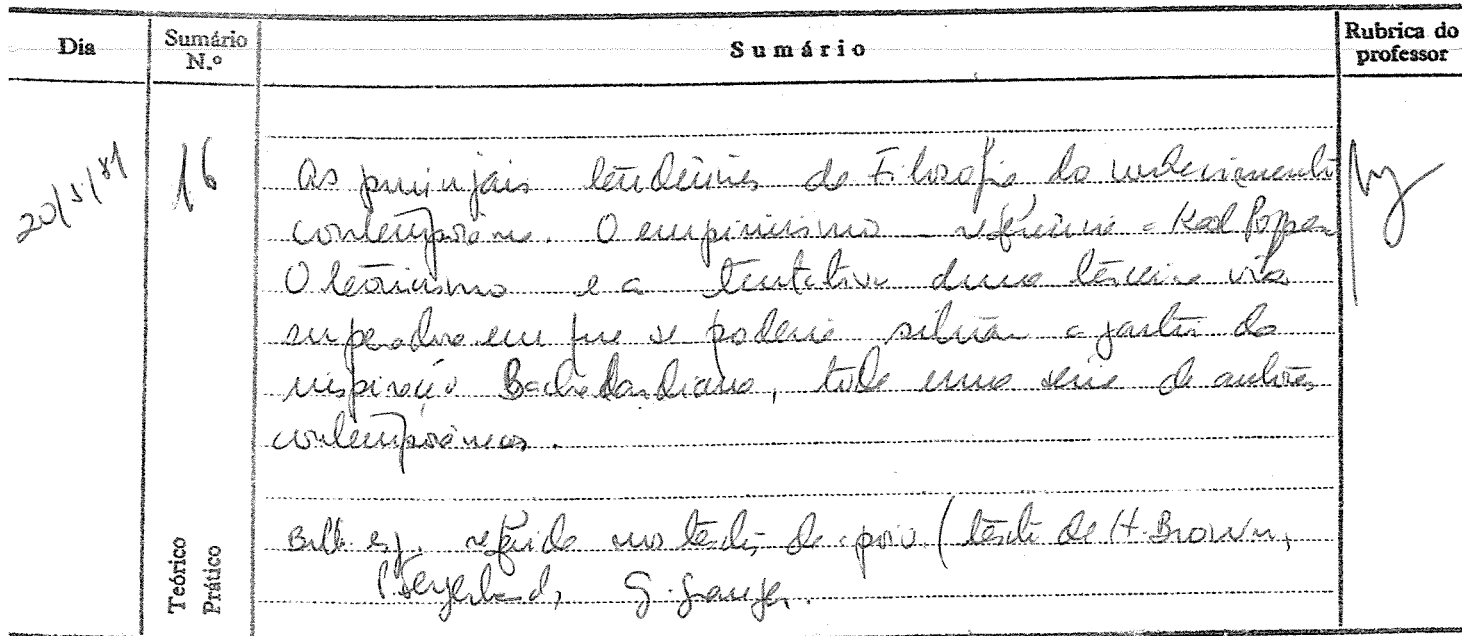 Dia
Sumário N.º
Sumário
Rubrica do professor
20/5/81
16
As principais tendências da Filosofia do conhecimento
contemporânea. O empirismo – referência a Karl Popper
O teoricismo e a tentativa duma terceira via
superadora em que se poderia situar a partir da
inspiração Bachelardiana, toda uma série de autores
contemporâneos.
Teórico
Prático
Bibl. esp. referida nos textos de apoio (texto de H. Brown,
P. Feyerabend, G. Granger.